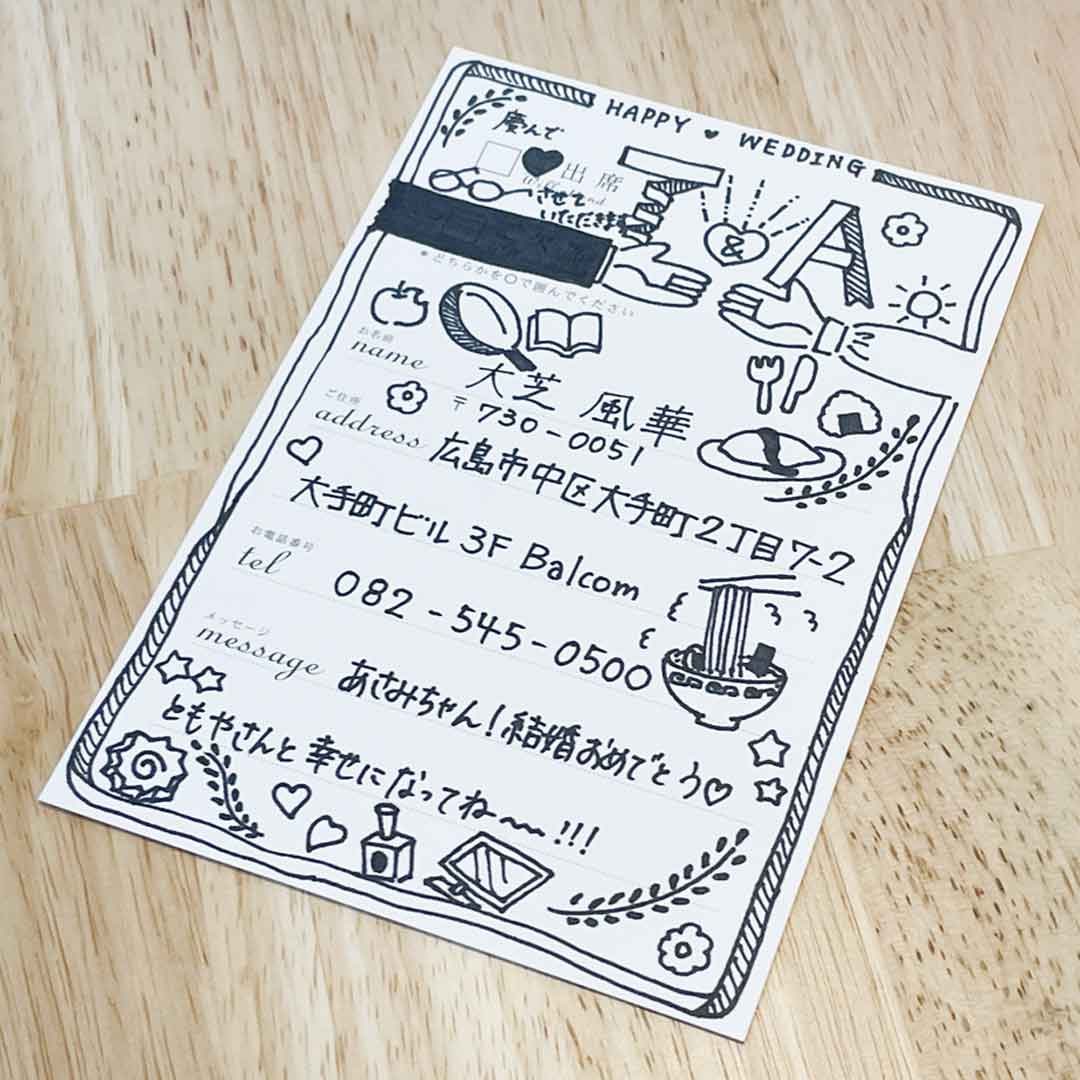 HAPPY ♥ WEDDING
慶んで
♥出席
させて
いただきます
T & A
*どちらかを○で囲んでください
お名前
name 大芝 風華
〒730-0051
ご住所
address 広島市中区大手町2丁目7-2
大手町ビル 3F Balcom
お電話番号
tel 082-545-0500
メッセージ
message あさみちゃん!結婚おめでとう♡
ともやさんと幸せになってね〜〜!!!